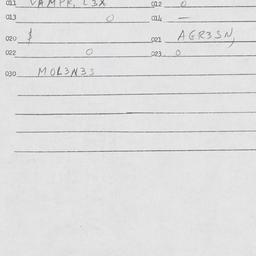 011 VAMPR, L3X 012 0
013 0 014 —
020 $ 021 AGR3SN,
022 0 023 0
030 MOL3N3S